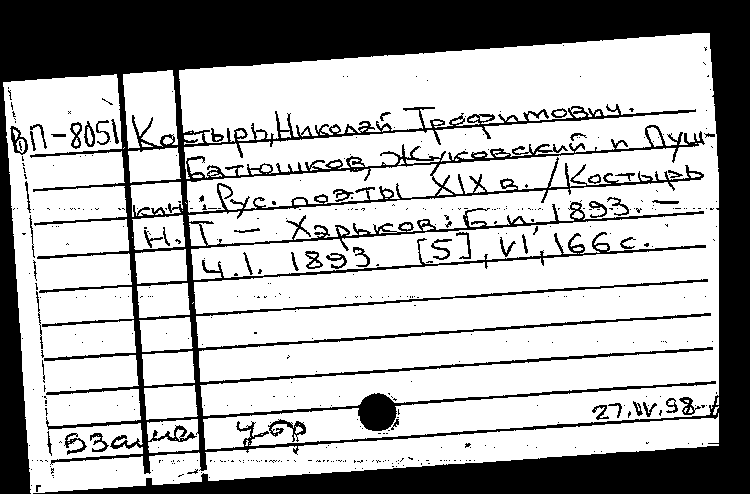 ВП-8051 Костырь, Николай Трофимович.
Батюшков, Жуковский и Пуш-
кин: Рус. поэты XIX в. / Костырь
Н. Т. - Харьков: Б.и. 1893. -
Ч.1. 1893. [5], VI, 166 с.
27.IV.98
Взамен убр